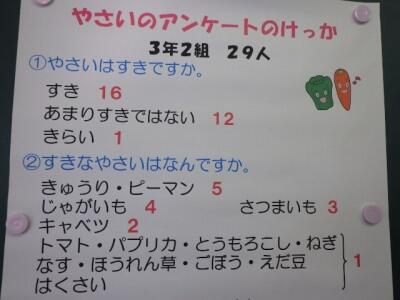 やさいのアンケートのけっか
3年2組 29人
①やさいはすきですか。
すき 16
あまりすきではない 12
きらい 1
②すきなやさいはなんですか。
きゅうり・ピーマン 5
じゃがいも 4 さつまいも 3
キャベツ 2
トマト・パプリカ・とうもろこし・ねぎ
なす・ほうれん草・ごぼう・えだ豆 1
はくさい